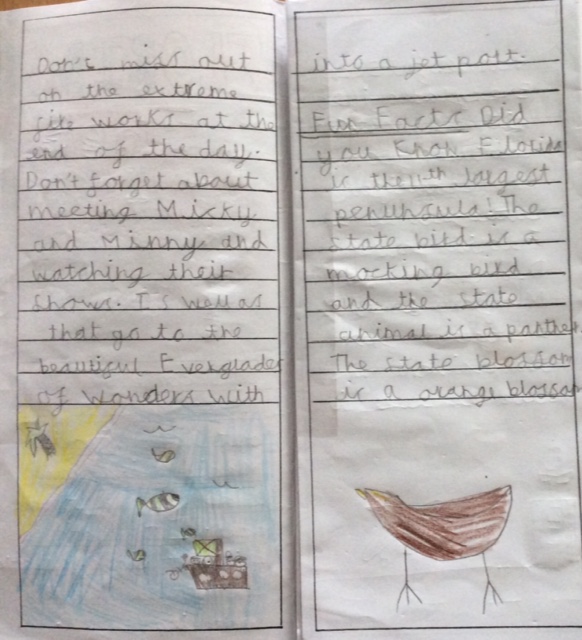 Don't miss out
on the extreme
fire works at the
end of the day.
Don't forget about
meeting Micky
and Minny and
watching their
shows. Is well as
that go to the
beautiful Everglades
of wonders with
into a jet port.
Fun Facts Did
you know Florida
is the 11th largest
penunsula! The
state bird is a
mocking bird
and the state
animal is a panther
The state blossom
is a orange blossom